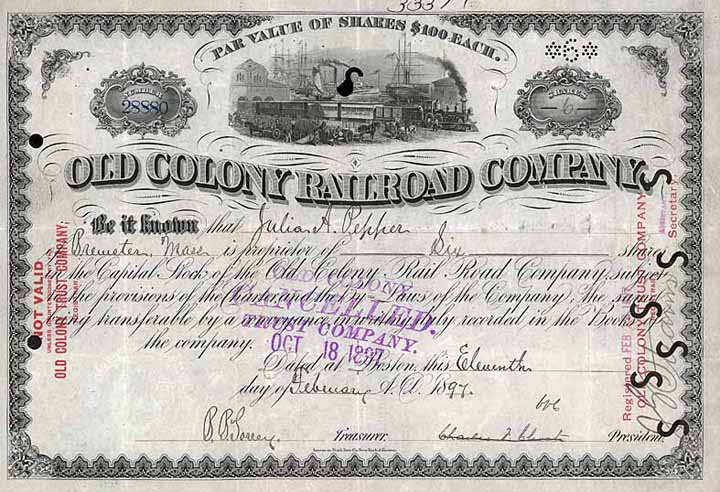 PAR VALUE OF SHARES $100 EACH.
NUMBER
28880
SHARES
6
OLD COLONY RAILROAD COMPANY
Be it known that Julia A. Pepper
Brewster, Mass is proprietor of Six shares
in the Capital Stock of the Old Colony Rail Road Company, subject
to the provisions of the Charter and the By Laws of the Company. The same
being transferable by a conveyance in writing duly recorded in the Books of
the company.
Dated at Boston, this Eleventh
day of February A.D. 1897.
Treasurer.
President.
OLD COLONY
CANCELLED.
TRUST COMPANY.
OCT 18 1897
NOT VALID
OLD COLONY TRUST COMPANY,
REGISTRAR
Registered FEB
OLD COLONY TRUST COMPANY
Secretary.